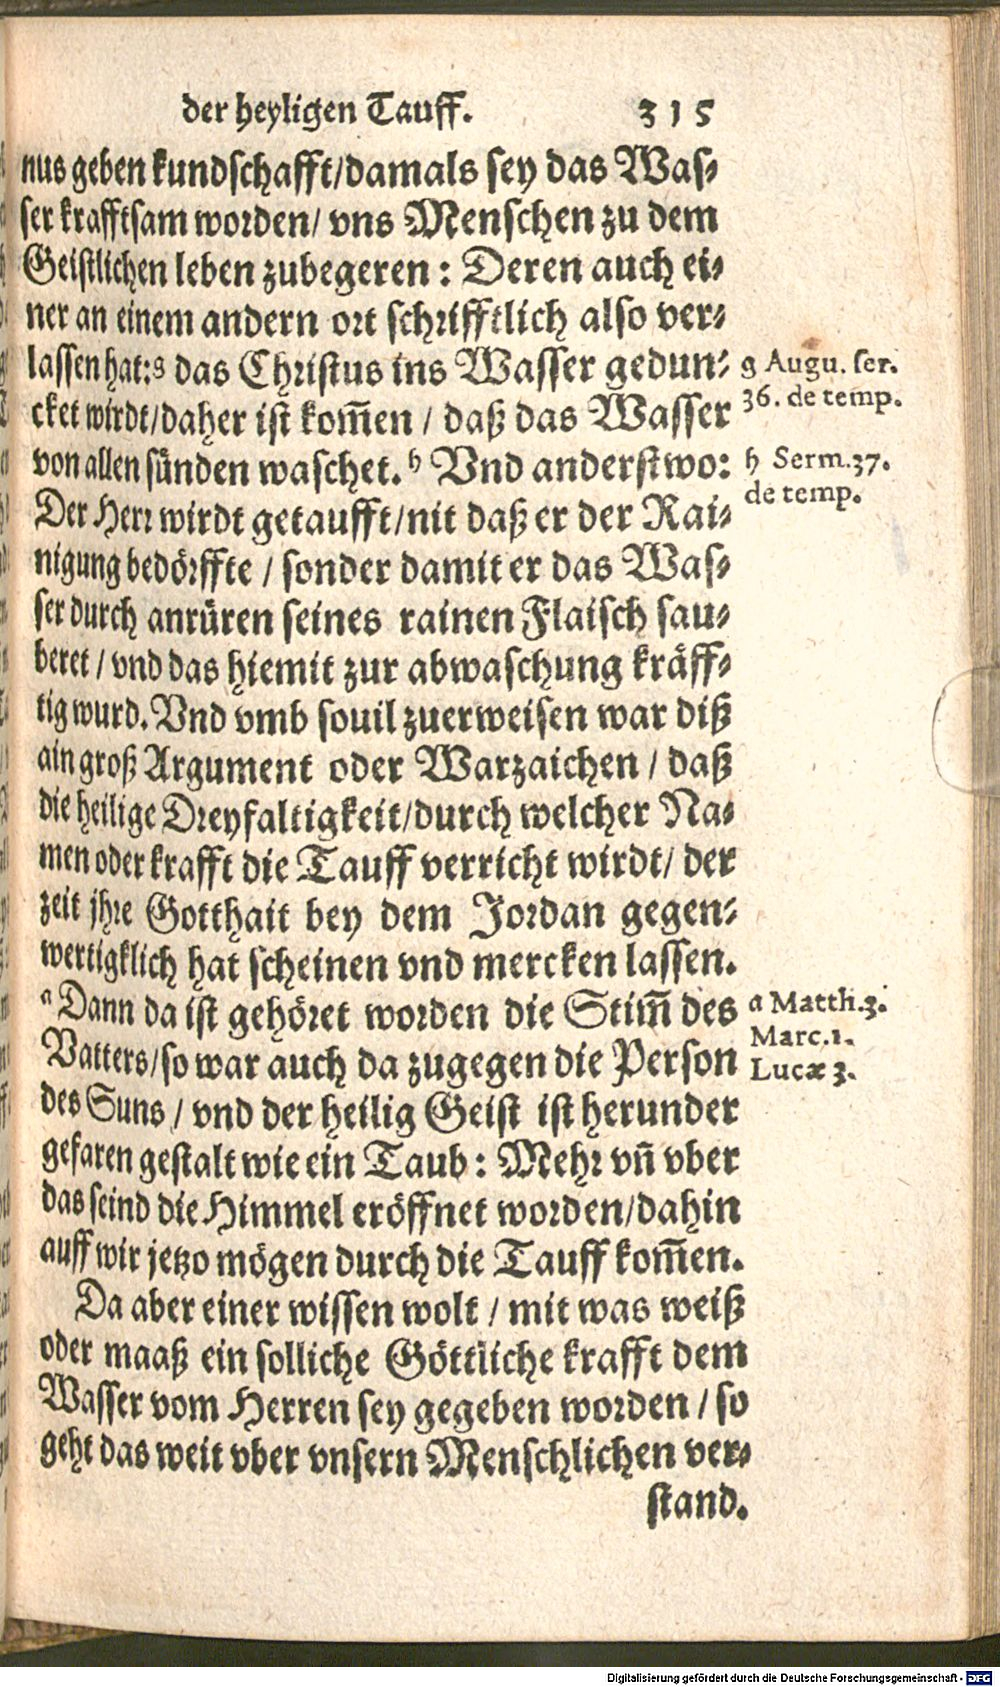 der heyligen Tauff. 315
nus geben kundschafft/damals sey das Was⸗
ser krafftsam worden/ vns Menschen zu dem
Geistlichen leben zubegeren: Deren auch ei⸗
ner an einem andern ort schrifftlich also ver⸗
lassen hat:g das Christus ins Wasser gedun⸗
cket wirdt/daher ist kom̃en / daß das Wasser
von allen sünden waschet.h Vnd anderstwo:
Der Herr wirdt getaufft/nit daß er der Rai⸗
nigung bedörffte / sonder damit er das Was⸗
ser durch anrüren seines rainen Flaisch sau⸗
beret / vnd das hiemit zur abwaschung kräff⸗
tig wurd. Vnd vmb souil zuerweisen war diß
ain groß Argument oder Warzaichen / daß
die heilige Dreyfaltigkeit/durch welcher Na⸗
men oder krafft die Tauff verricht wirdt/ der
zeit jhre Gotthait bey dem Jordan gegen⸗
wertigklich hat scheinen vnd mercken lassen.
a Dann da ist gehöret worden die Stim̃ des
Vatters/so war auch da zugegen die Person
des Suns / vnd der heilig Geist ist herunder
gefaren gestalt wie ein Taub: Mehr vñ vber
das seind die Himmel eröffnet worden/dahin
auff wir jetzo mögen durch die Tauff kom̃en.
Da aber einer wissen wolt / mit was weiß
oder maaß ein solliche Göttliche krafft dem
Wasser vom Herren sey gegeben worden / so
geht das weit vber vnsern Menschlichen ver⸗
stand.
g Augu. ser.
36. de temp.
h Serm.37.
de temp.
a Matth.3.
Marc.1.
Lucæ 3.
Digitalisierung gefördert durch die Deutsche Forschungsgemeinschaft - DFG